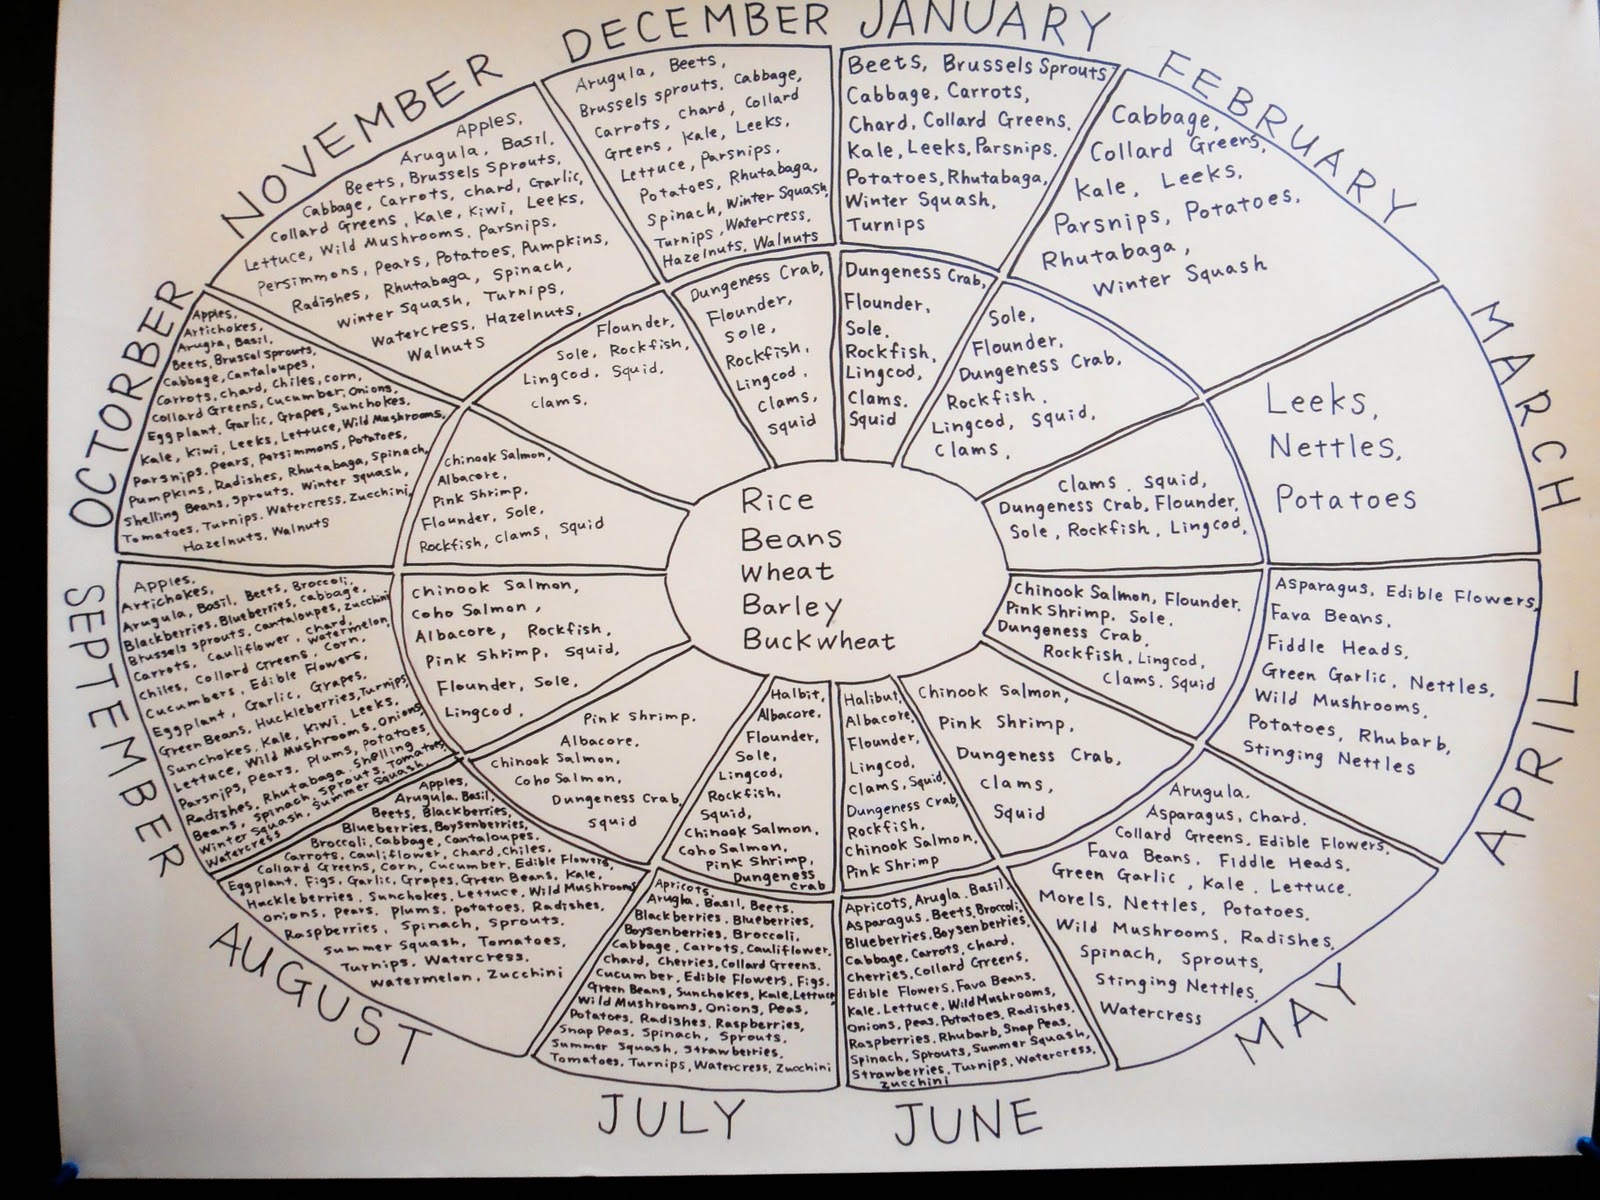 JANUARY
Beets, Brussels Sprouts
Cabbage, Carrots,
Chard, Collard Greens,
Kale, Leeks, Parsnips.
Potatoes, Rhutabaga,
Winter Squash,
Turnips
Dungeness Crab,
Flounder,
Sole.
Rockfish,
Lingcod,
Clams.
Squid
FEBRUARY
Cabbage,
Collard Greens,
Kale, Leeks.
Parsnips, Potatoes.
Rhutabaga,
Winter Squash
Sole,
Flounder,
Dungeness Crab,
Rockfish.
Lingcod, Squid,
Clams,
MARCH
Leeks,
Nettles,
Potatoes
Clams, Squid,
Dungeness Crab, Flounder,
Sole, Rockfish, Lingcod,
APRIL
Asparagus, Edible Flowers,
Fava Beans,
Fiddle Heads,
Green Garlic, Nettles,
Wild Mushrooms,
Potatoes, Rhubarb,
Stinging Nettles
Chinook Salmon, Flounder,
Pink Shrimp, Sole,
Dungeness Crab,
Rockfish, Lingcod,
Clams, Squid
MAY
Arugula,
Asparagus, Chard.
Collard Greens, Edible Flowers,
Fava Beans, Fiddle Heads,
Green Garlic, Kale, Lettuce.
Morels, Nettles, Potatoes,
Wild Mushrooms, Radishes,
Spinach, Sprouts,
Stinging Nettles,
Watercress
Chinook Salmon,
Pink Shrimp,
Dungeness Crab,
Clams,
Squid
JUNE
Apricots, Arugla, Basil,
Asparagus, Beets, Broccoli,
Blueberries, Boysenberries,
Cabbage, Carrots, Chard,
Cherries, Collard Greens,
Edible Flowers, Fava Beans,
Kale, Lettuce, Wild Mushrooms,
Onions, Peas, Potatoes, Radishes,
Raspberries, Rhubarb, Snap Peas,
Spinach, Sprouts, Summer Squash,
Strawberries, Turnips, Watercress,
Zucchini
Halibut,
Albacore,
Flounder,
Lingcod,
Clams, Squid,
Dungeness Crab,
Rockfish,
Chinook Salmon,
Pink Shrimp
JULY
Apricots,
Arugla, Basil, Beets,
Blackberries, Blueberries,
Boysenberries, Broccoli,
Cabbage, Carrots, Cauliflower,
Chard, Cherries, Collard Greens.
Cucumber, Edible Flowers, Figs,
Green Beans, Sunchokes, Kale, Lettuce,
Wild Mushrooms, Onions, Peas,
Potatoes, Radishes, Raspberries,
Snap Peas, Spinach, Sprouts,
Summer Squash, Strawberries,
Tomatoes, Turnips, Watercress, Zucchini
Halbit,
Albacore,
Flounder,
Sole,
Lingcod,
Rockfish,
Squid,
Chinook Salmon,
Coho Salmon,
Pink Shrimp,
Dungeness
Crab
AUGUST
Apples,
Arugula, Basil,
Beets, Blackberries,
Blueberries, Boysenberries,
Broccoli, Cabbage, Cantaloupes,
Carrots, Cauliflower, Chard, Chiles,
Collard Greens, Corn, Cucumber, Edible Flowers,
Eggplant, Figs, Garlic, Grapes, Green Beans, Kale,
Huckleberries, Sunchokes, Lettuce, Wild Mushrooms
Onions, Pears, Plums, Potatoes, Radishes,
Raspberries, Spinach, Sprouts,
Summer Squash, Tomatoes,
Turnips, Watercress,
Watermelon, Zucchini
Pink Shrimp,
Albacore,
Chinook Salmon,
Coho Salmon,
Dungeness Crab,
Squid
SEPTEMBER
Apples,
Artichokes,
Arugula, Basil, Beets, Broccoli,
Blackberries, Blueberries, Cabbage,
Brussels sprouts, Cantaloupes, Zucchini
Carrots, Cauliflower, Chard, Watermelon,
Chiles, Collard Greens, Corn,
Cucumbers, Edible Flowers,
Eggplant, Garlic, Grapes,
Green Beans, Huckleberries, Turnips,
Sunchokes, Kale, Kiwi, Leeks,
Lettuce, Wild Mushrooms, Onions,
Parsnips, Pears, Plums, Potatoes,
Radishes, Rhutabaga, Shelling
Beans, Spinach, Sprouts, Tomatoes,
Winter Squash, Summer Squash,
Watercress
Chinook Salmon,
Coho Salmon,
Albacore, Rockfish,
Pink Shrimp, Squid,
Flounder, Sole,
Lingcod,
OCTORBER
Apples,
Artichokes,
Arugra, Basil,
Beets, Brussel Sprouts,
Cabbage, Cantaloupes,
Carrots, Chard, Chiles, Corn,
Collard Greens, Cucumber, Onions,
Eggplant, Garlic, Grapes, Sunchokes,
Kale, Kiwi, Leeks, Lettuce, Wild Mushrooms,
Parsnips, Pears, Persimmons, Potatoes,
Pumpkins, Radishes, Rhutabaga, Spinach,
Shelling Beans, Sprouts, Winter Squash,
Tomatoes, Turnips, Watercress, Zucchini,
Hazelnuts, Walnuts
Chinook Salmon,
Albacore,
Pink Shrimp,
Flounder, Sole,
Rockfish, Clams, Squid
NOVEMBER
Apples,
Arugula, Basil,
Beets, Brussels Sprouts,
Cabbage, Carrots, Chard, Garlic,
Collard Greens, Kale, Kiwi, Leeks,
Lettuce, Wild Mushrooms, Parsnips,
Persimmons, Pears, Potatoes, Pumpkins,
Radishes, Rhutabaga, Spinach,
Winter Squash, Turnips,
Watercress, Hazelnuts,
Walnuts
Flounder,
Sole, Rockfish,
Lingcod, Squid,
Clams,
DECEMBER
Arugula, Beets,
Brussels sprouts, Cabbage,
Carrots, Chard, Collard
Greens, Kale, Leeks,
Lettuce, Parsnips,
Potatoes, Rhutabaga,
Spinach, Winter Squash,
Turnips, Watercress,
Hazelnuts, Walnuts
Dungeness Crab,
Flounder,
Sole,
Rockfish,
Lingcod,
Clams,
Squid
Rice
Beans
Wheat
Barley
Buckwheat